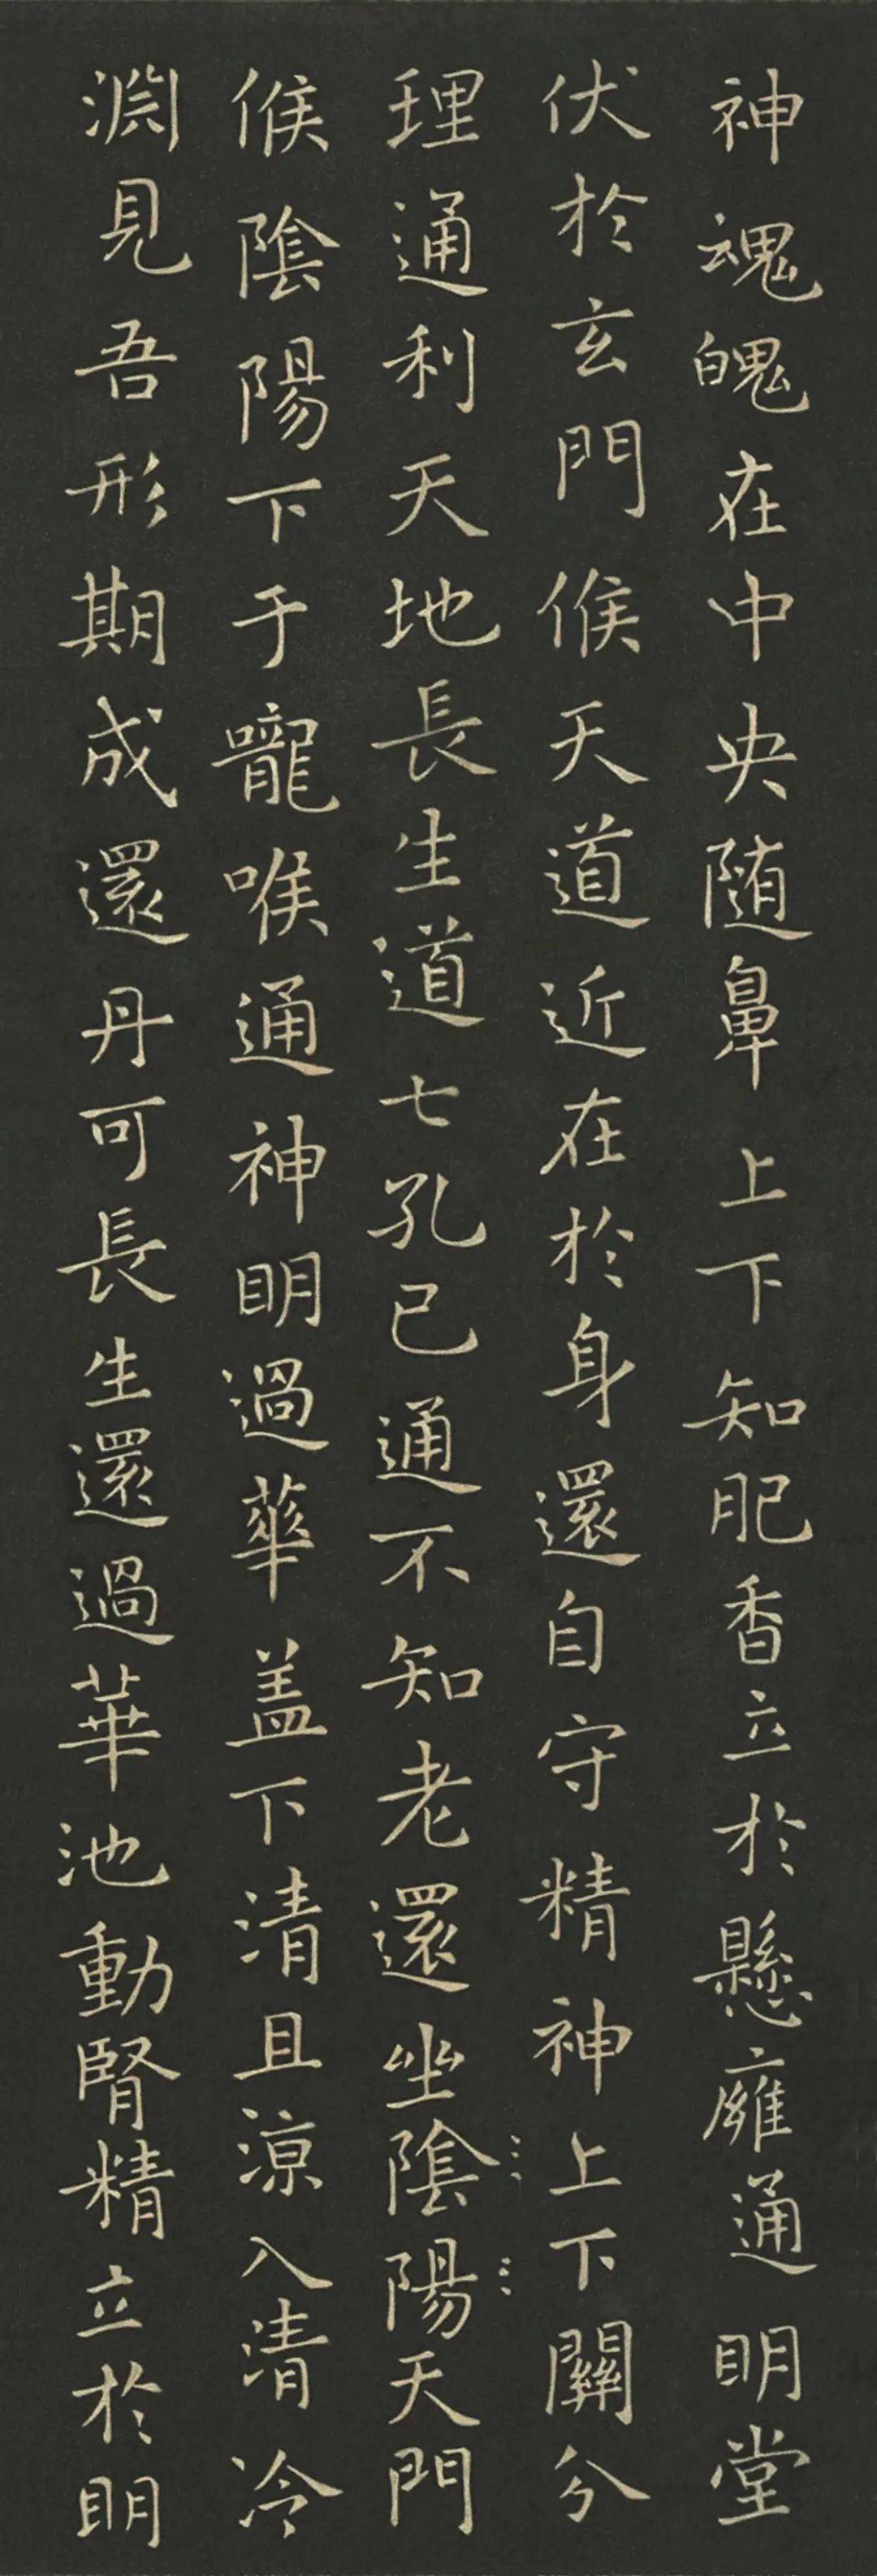 神魂魄在中央随鼻上下知肥香立於懸廱通明堂
伏於玄門候天道近在於身還自守精神上下關分
理通利天地長生道七孔已通不知老還坐陰陽天門
候陰陽下于嚨喉通神明過華盖下清且涼入清冷
淵見吾形期成還丹可長生還過華池動腎精立於明